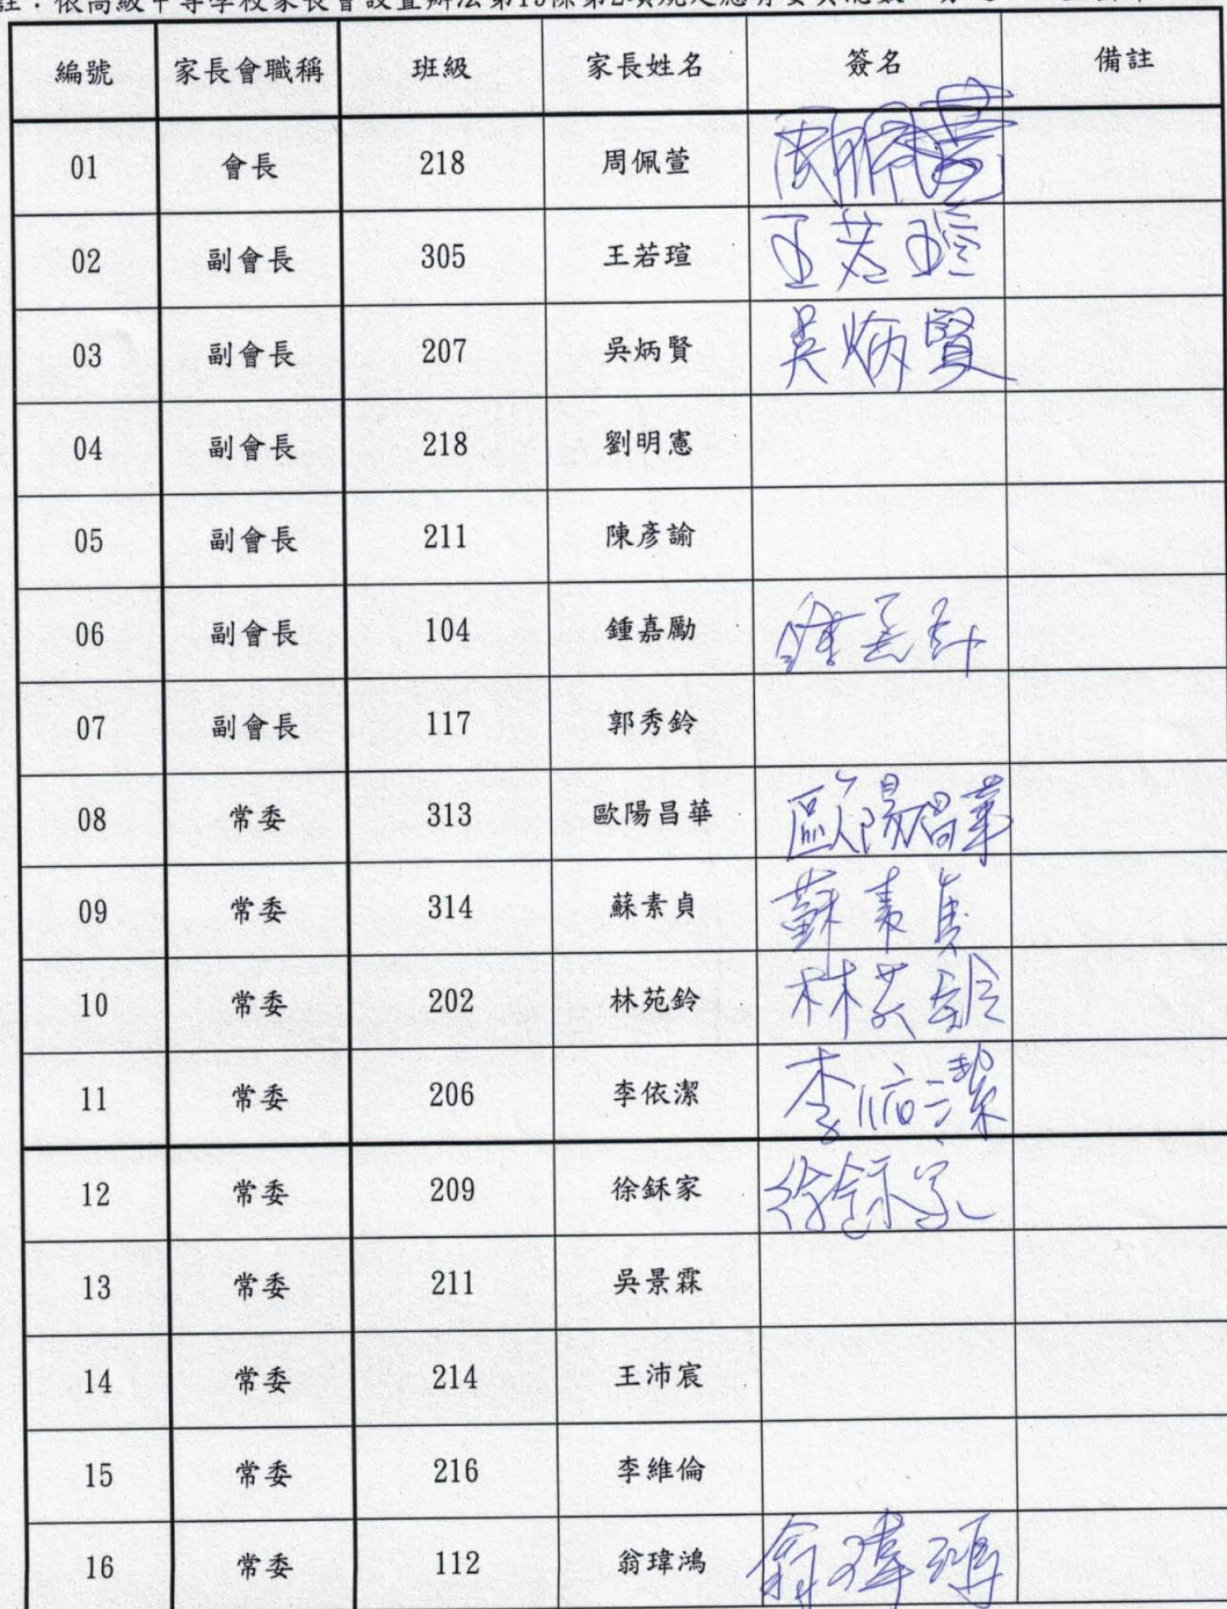 註：依高級中等學校家長會設置辦法第15條第2項規定應有委員總數
編號 家長會職稱 班級 家長姓名 簽名 備註
01 會長 218 周佩萱 周佩萱
02 副會長 305 王若瑄 王若瑄
03 副會長 207 吳炳賢 吳炳賢
04 副會長 218 劉明憲
05 副會長 211 陳彥諭
06 副會長 104 鍾嘉勵
07 副會長 117 郭秀鈴
08 常委 313 歐陽昌華 歐陽昌華
09 常委 314 蘇素貞 蘇素貞
10 常委 202 林苑鈴 林苑鈴
11 常委 206 李依潔 李依潔
12 常委 209 徐鉌家 徐鉌家
13 常委 211 吳景霖
14 常委 214 王沛宸
15 常委 216 李維倫
16 常委 112 翁瑋鴻 翁瑋鴻